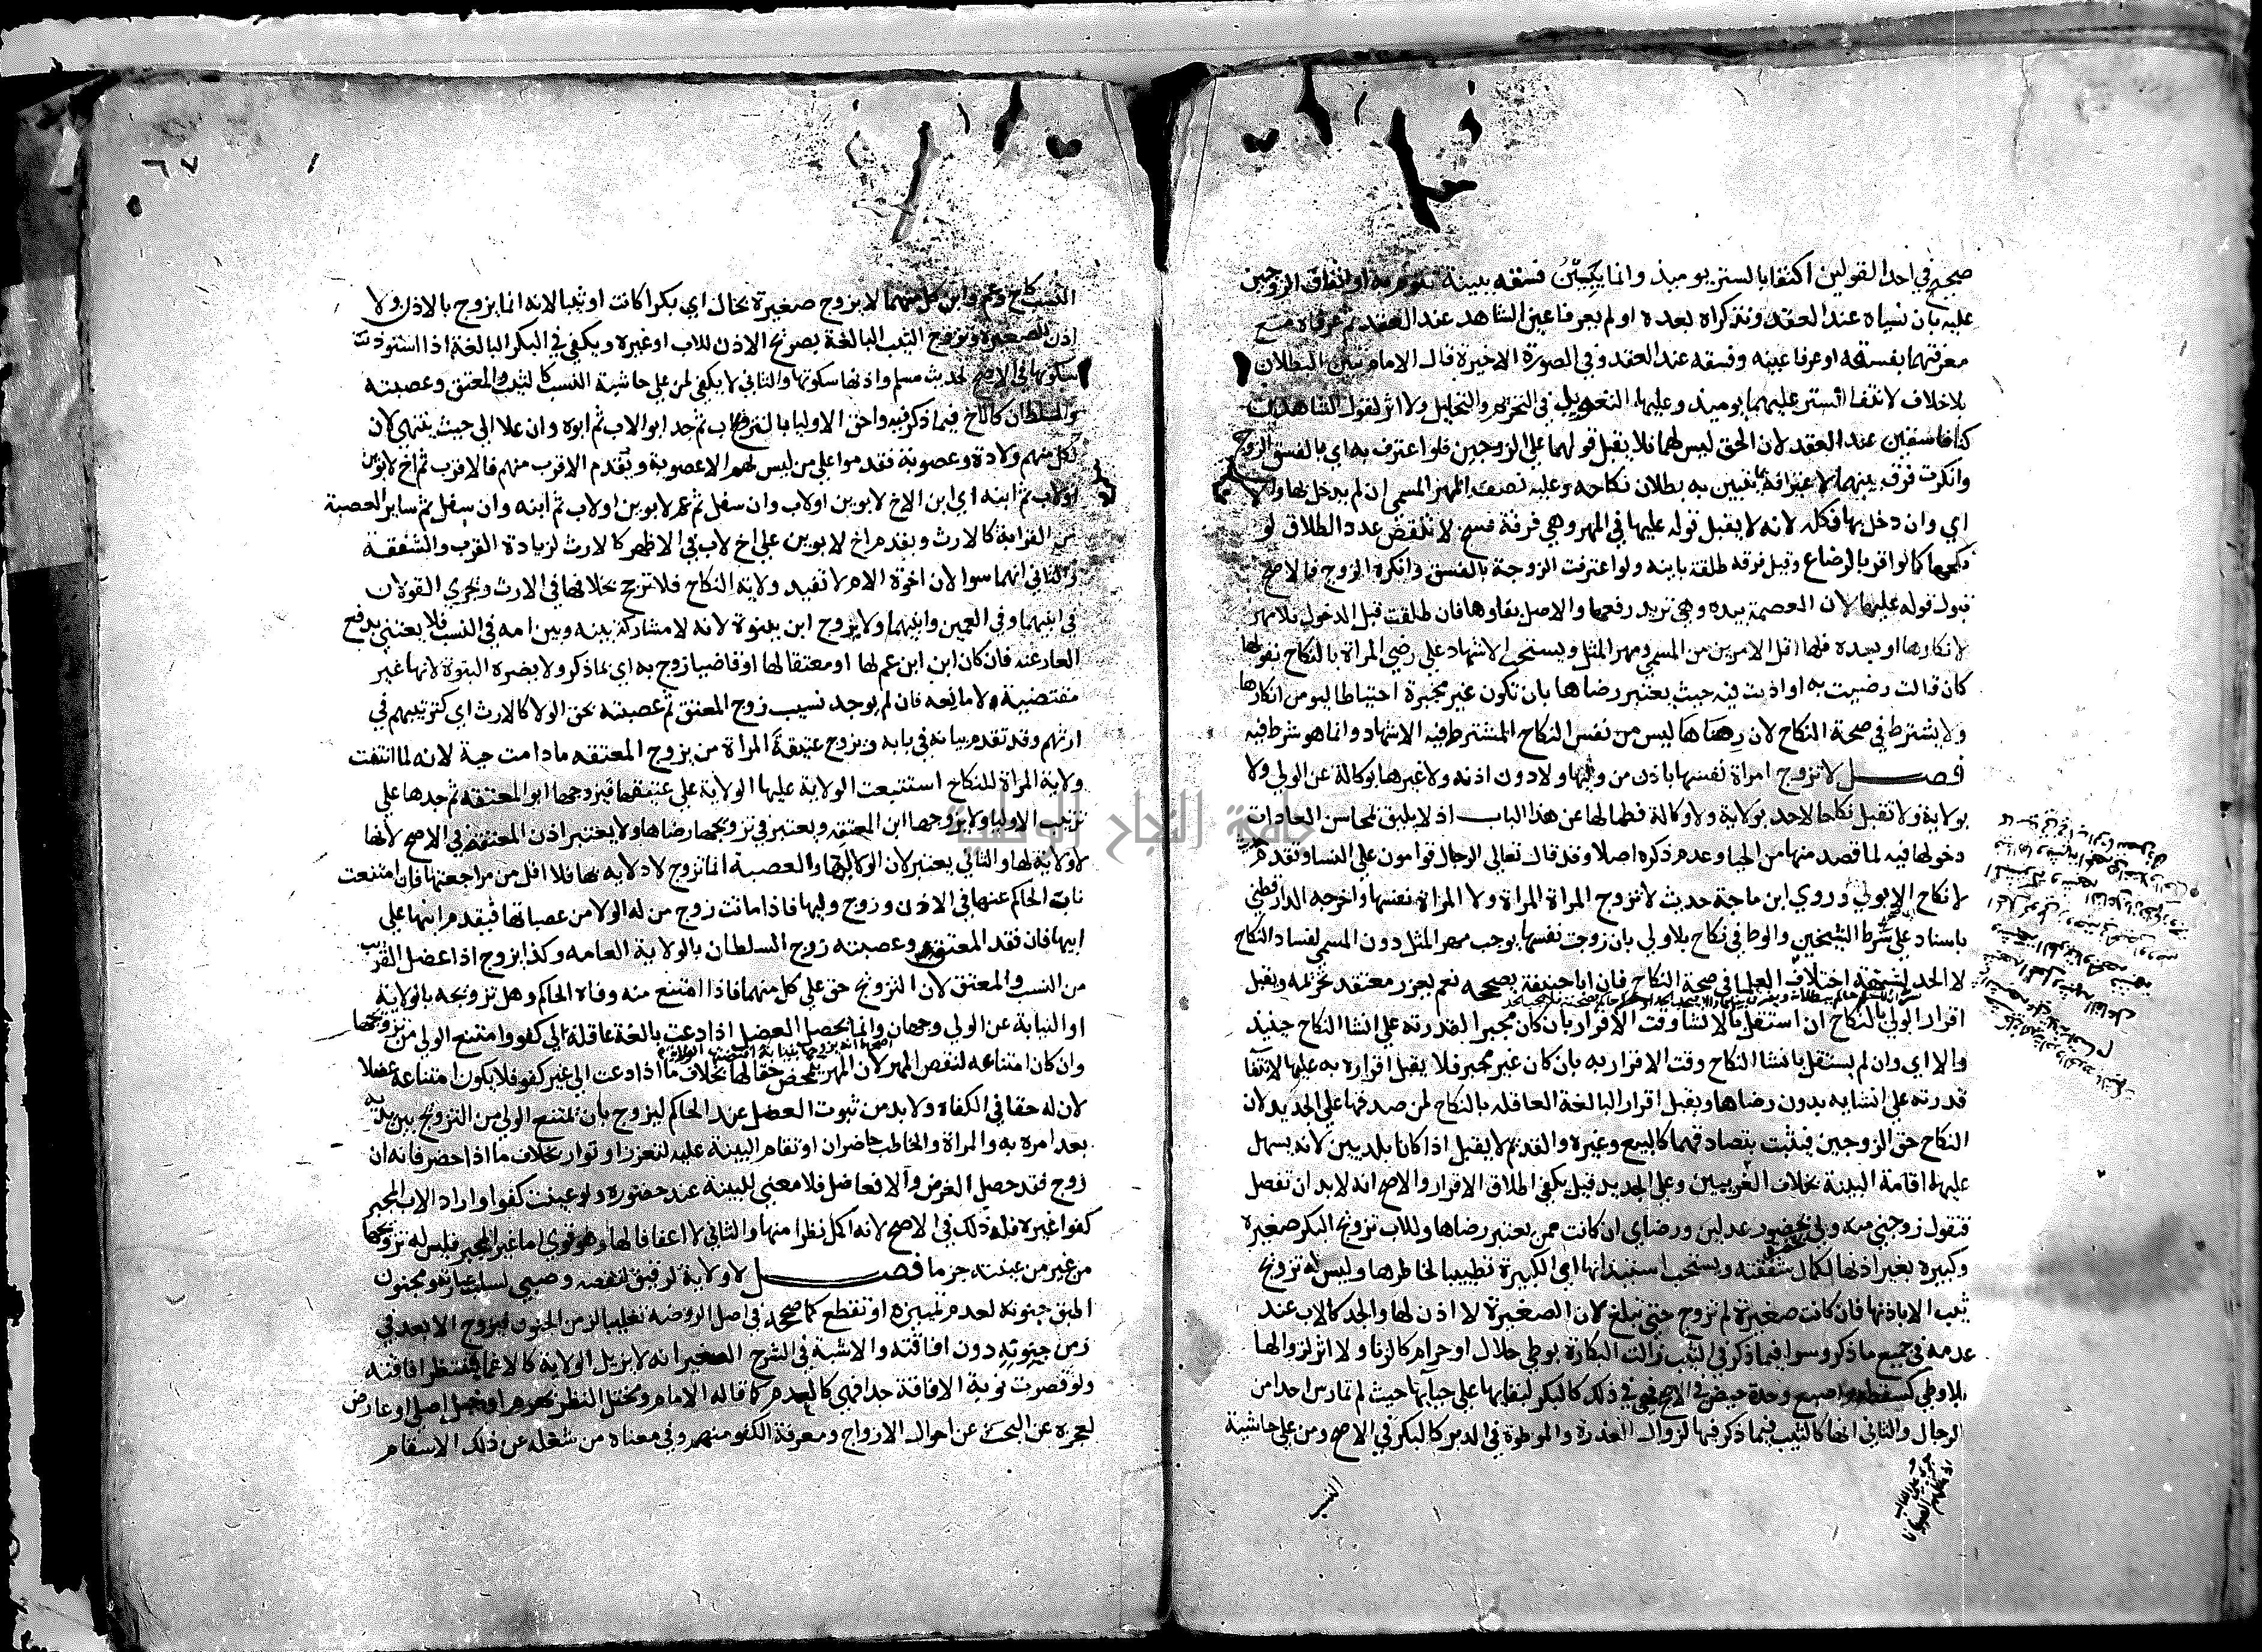 صحيح في احد القولين اكتفا بالستر يوميذ وانما يتبين فسقه ببينة تقوم به او اتفاق الزوجين
عليه بان نسياه عند العقد وتذكراه بعده او لم يعرفا عين الشاهد عند العقد ثم عرفاه مع
معرفتهما بفسقه او عرفا عينه وفسقه عند العقد وفي الصورة الاخيرة قال الامام تبين البطلان
بلا خلاف لانتفا الستر عليهما يوميذ وعليهما التعويل في التحريم والتحليل ولا اثر لقول الشاهدين
كنا فاسقين عند العقد لان الحق ليس لهما فلا يقبل قولهما على الزوجين فلو اعترف به اي بالفسق الزوج
وانكرت فرق بينهما لاعترافه بما يتبين به بطلان نكاحه وعليه نصف المهر المسمى ان لم يدخل بها والا
اي وان دخل بها فكله لانه لا يقبل قوله عليها في المهر وهي فرقة فسخ لا تنقض عدد الطلاق لو
نكحها كما لو اقر بالرضاع وقيل فرقه طلقة باينه ولو اعترفت الزوجة بالفسق وانكره الزوج فالاصح
قبول قوله عليها لان العصمة بيده وهي تريد رفعها والاصل بقاوها فان طلقت قبل الدخول فلا مهر
لانكارها او بعده فلها اقل الامرين من المسمى ومهر المثل ويستحب الاشهاد على رضى المراة بالنكاح بقولها
كان قالت رضيت به او اذنت فيه حيث يعتبر رضاها بان تكون غير مجبرة احتياطا ليومن انكارها
ولا يشترط في صحة النكاح لان رضاها ليس من نفس النكاح المشترط فيه الاشهاد وانما هو شرط فيه
فصل لا تزوج امراة نفسها باذن من وليها ولا دون اذنه ولا غيرها بوكالة عن الولي ولا
بولاية ولا تقبل نكاحا لاحد بولاية ولا وكالة فطما لها عن هذا الباب اذ لا يليق بمحاسن العادات
دخولها فيه لما قصد منها من الحيا وعدم ذكره اصلا وقد قال تعالى الرجال قوامون على النسا وتقدم حديث
لا نكاح الا بولي وروى ابن ماجة حديث لا تزوج المراة المراة ولا المراة نفسها واخرجه الدارقطني
باسناد على شرط الشيخين والوطا في نكاح بلا ولي بان زوجت نفسها يوجب مهر المثل دون المسمى لفساد النكاح
لا الحد لشبهة اختلاف العلما في صحة النكاح فان ابا حنيفة يصححه نعم يعزر معتقد تحريمه ويقبل
اقرار الولي بالنكاح ان استقل بالانشا وقت الاقرار بان كان مجبرا لقدرته على انشا النكاح حينيذ
والا اي وان لم يستقل بانشا النكاح وقت الاقرار به بان كان غير مجبر فلا يقبل اقراره به عليها لانتفا
قدرته على انشايه بدون رضاها ويقبل اقرار البالغة العاقله بالنكاح لمن صدقها على الجديد لان
النكاح حق الزوجين فيثبت بتصادقهما كالبيع وغيره والقديم لا يقبل اذا كانا بلديين لانه يسهل
عليهما اقامة البينة بخلاف الغريبين وعلى الجديد قيل يكفي اطلاق الاقرار والاصح انه لا بد ان تفصل
فتقول زوجني منه ولي بحضور عدلين ورضاي ان كانت ممن يعتبر رضاها وللاب تزويج البكر صغيرة
وكبيرة بغير اذنها لكمال شفقته ويستحب استيذانها اي الكبيرة تطييبا لخاطرها وليس له تزويج
ثيب الا باذنها فان كانت صغيرة لم تزوج حتى تبلغ لان الصغيرة لا اذن لها والجد كالاب عند
عدمه في جميع ما ذكر وسوا فيما ذكر في الثيب زالت البكارة بوطي حلال او حرام كالزنا ولا اثر لزوالها
بلا وطي كسقطه واصبع وحدة حيض في الاصح فهي في ذلك كالبكر لبقايها على حيايها حيث لم تمارس احدا من
الرجال والثاني انها كالثيب فيما ذكر فيها لزوال العذرة والموطوة في الدبر كالبكر في الاصح ومن على حاشية
النسب
٦٧
النسب كاخ وعم وابن كل منهما لا يزوج صغيرة بحال اي بكرا كانت او ثيبا لانه انما يزوج بالاذن ولا
اذن للصغيرة وتزوج الثيب البالغة بصريح الاذن للاب او غيره ويكفي في البكر البالغة اذا استوذنت
سكوتها في الاصح لحديث مسلم واذنها سكوتها والثاني لا يكفي لمن على حاشية النسب كالثيب والمعتق وعصبته
والسلطان كالاخ فيما ذكر فيه واحق الاوليا بالتزويج اب ثم جد ابو الاب ثم ابوه وان علا الى حيث ينتهي لان
لكل منهم ولادة وعصوبة فقدموا على من ليس لهم الا عصوبة ويقدم الاقرب منهم فالاقرب ثم اخ لابوين
او لاب ثم ابنه اي ابن الاخ لابوين او لاب وان سفل ثم عم لابوين او لاب ثم ابنه وان سفل ثم ساير العصبة
من القرابة كالارث ويقدم اخ لابوين على اخ لاب في الاظهر كالارث لزيادة القرب والشفقة
والثاني انهما سوا لان اخوة الام لا تفيد ولاية النكاح فلا ترجح بخلافها في الارث ويجري القولان
في ابنيهما وفي العمين وابنيهما ولا يزوج ابن ببنوة لانه لا مشاركة بينه وبين امه في النسب فلا يعتني بدفع
العار عنه فان كان ابن ابن عم لها او معتقا لها او قاضيا زوج به اي بما ذكر ولا يضره البنوة لانها غير
مقتضية ولا مانعه فان لم يوجد نسيب زوج المعتق ثم عصبته بحق الولا كالارث اي كترتيبهم في
ارثهم وقد تقدم بيانه في بابه ويزوج عتيقة المراة من يزوج المعتقه ما دامت حية لانه لما انتفت
ولاية المراة للنكاح استتبعت الولاية عليها الولاية على عتيقها فيزوجها ابو المعتقه ثم جدها على
ترتيب الاوليا ولا يزوجها ابن المعتقه ويعتبر في تزويجها رضاها ولا يعتبر اذن المعتقه في الاصح لانها
لا ولاية لها والثاني يعتبر لان الولا لها والعصبة انما تزوج لادلايه بها فلا اقل من مراجعتها فان امتنعت
ناب الحاكم عنها في الاذن وزوج وليها فاذا ماتت زوج من له الولا من عصباتها فيقدم ابنها على
ابيها فان فقد المعتق وعصبته زوج السلطان بالولاية العامه وكذا يزوج اذا عضل القريب
من النسب والمعتق لان التزويج حق على كل منهما فاذا امتنع منه وفاه الحاكم وهل تزويجه بالولاية
او النيابة عن الولي وجهان وانما يحصل العضل اذا دعت بالغة عاقلة الى كفو وامتنع الولي من تزويجها
وان كان امتناعه لنقص المهر لان المهر يتمحض حقا لها بخلاف ما اذا دعت الى غير كفو فلا يكون امتناعه عضلا
لان له حقا في الكفاه ولا بد من ثبوت العضل عند الحاكم ليزوج بان يمتنع الولي من التزويج بين يديه
بعد امره به والمراة والخاطب حاضران او تقام البينة عليه لتعزز او توار بخلاف ما اذا حضر فانه ان
زوج فقد حصل الغرض والا فعاضل فلا معنى للبينة عند حضوره ولو عينت كفوا واراد الاب المجبر
كفوا غيره فله ذلك في الاصح لانه اكمل نظرا منها والثاني لا اعفافا لها وهو قوي اما غير المجبر فليس له تزويجها
من غير من عينته جزما فصل لا ولاية لرقيق لنقصه وصبي لسلب عبارته ومجنون
اطبق جنونه لعدم تمييزه او تقطع كما صححه في اصل الروضه تغليبا لزمن الجنون فيزوج الابعد في
زمن جنونه دون افاقته والاشبه في الشرح الصغير انه لا يزيل الولاية كالاغما فينتظر افاقته
ولو قصرت نوبة الافاقة جدا فهي كالعدم كما قاله الامام ومختل النظر بهرم او خبل اصلي او عارض
لعجزه عن البحث عن احوال الازواج ومعرفة الكفو منهم وفي معناه من شغله عن ذلك الاسقام
جامعة النجاح الوطنية